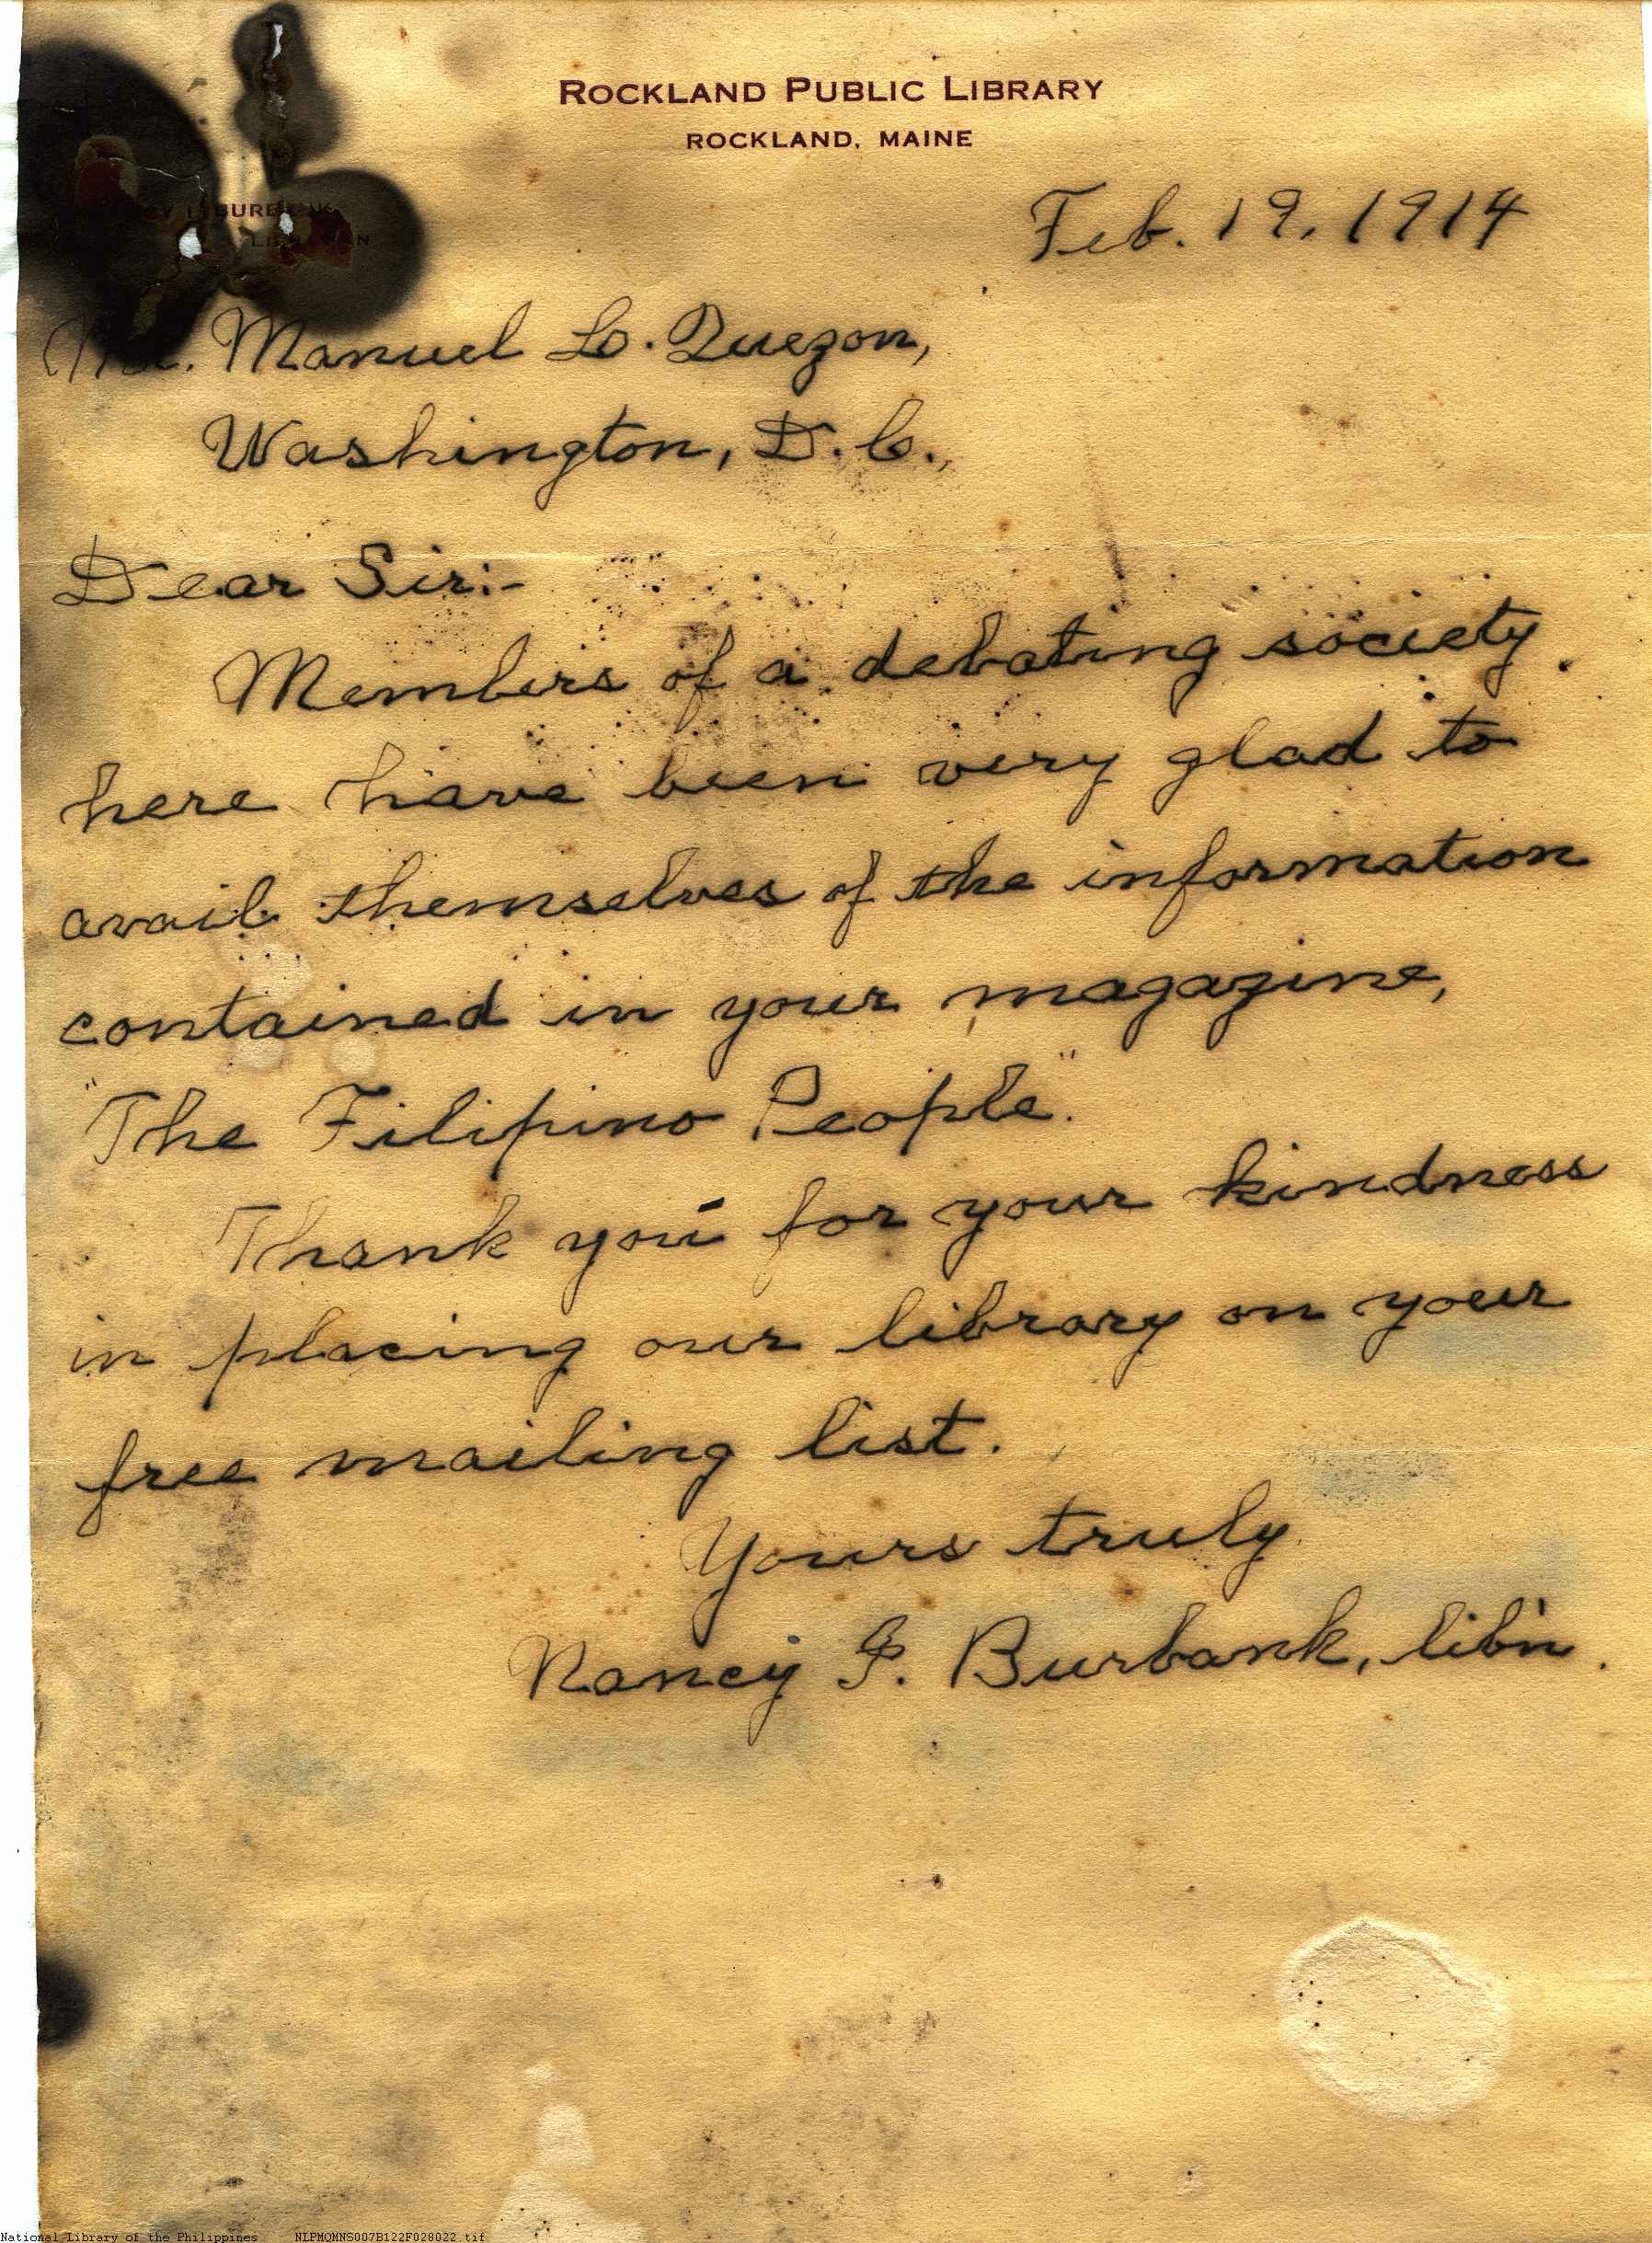 ROCKLAND PUBLIC LIBRARY
ROCKLAND, MAINE
BURBANK
LIBRARIAN
Feb. 19, 1914
Mr. Manuel L. Quezon,
Washington, D.C.,
Dear Sir:-
Members of a debating society
here have been very glad to
avail themselves of the information
contained in your magazine,
"The Filipino People."
Thank you for your kindness
in placing our library on your
free mailing list.
Yours truly
Nancy I. Burbank, lib'n.
National Library of the Philippines NLPMQMNS007B122F028022.tif